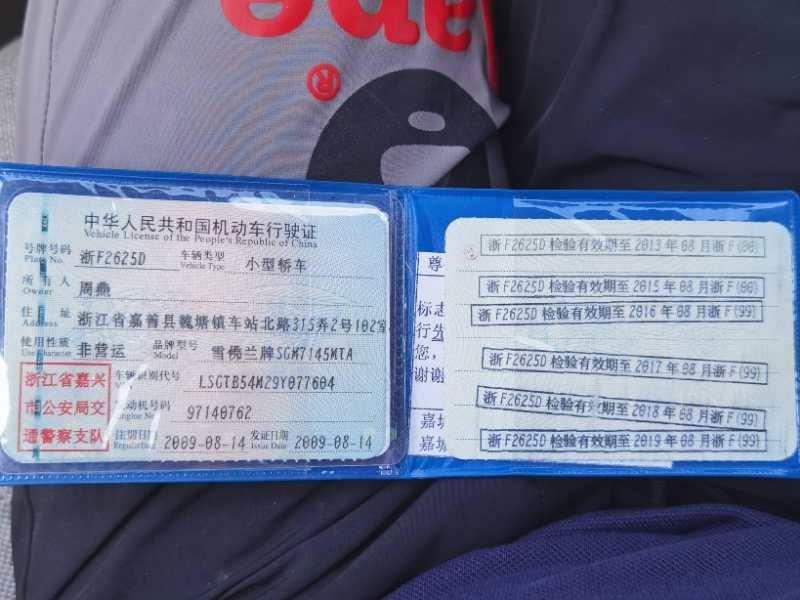 ape
®
中华人民共和国机动车行驶证
Vehicle License of the People's Republic of China
号牌号码 浙F2625D 车辆类型 小型轿车
Plate No. Vehicle Type
所有人 周燕
Owner
住址 浙江省嘉善县魏塘镇车站北路315弄2号102室
Address
使用性质 非营运 品牌型号 雪佛兰牌SGM7145MTA
Use Character Model
浙江省嘉兴
市公安局交
通警察支队
车辆识别代号 LSGTB54M29Y077604
发动机号码 97140762
Engine No.
注册日期 2009-08-14 发证日期 2009-08-14
Issue Date
尊
标志
行先
您，
谢谢
嘉
嘉城
浙F2625D 检验有效期至 2013 年 08 月浙F(06)
浙F2625D 检验有效期至 2015 年 08 月浙F(06)
浙F2625D 检验有效期至 2016 年 08 月浙F(99)
浙F2625D 检验有效期至 2017 年 08 月浙F(99)
浙F2625D 检验有效期至 2018 年 08 月浙F(99)
浙F2625D 检验有效期至 2019 年 08 月浙F(99)